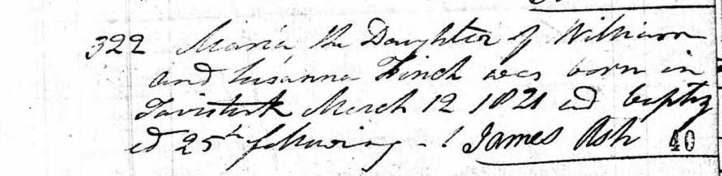 322 Maria the Daughter of William
and Susanna Finch was born in
Tavistock March 12 1821 ad baptiz
ed 25th following - James Ash 40